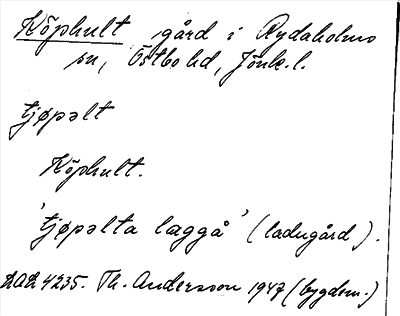 Köphult gård i Rydaholms
sn, Östbo hd, Jönk. l.
tjøpəlt
Köphult.
'tjøpəlta læggå' (ladugård).
4235. Th. Andersson 1947 (bygdem.)